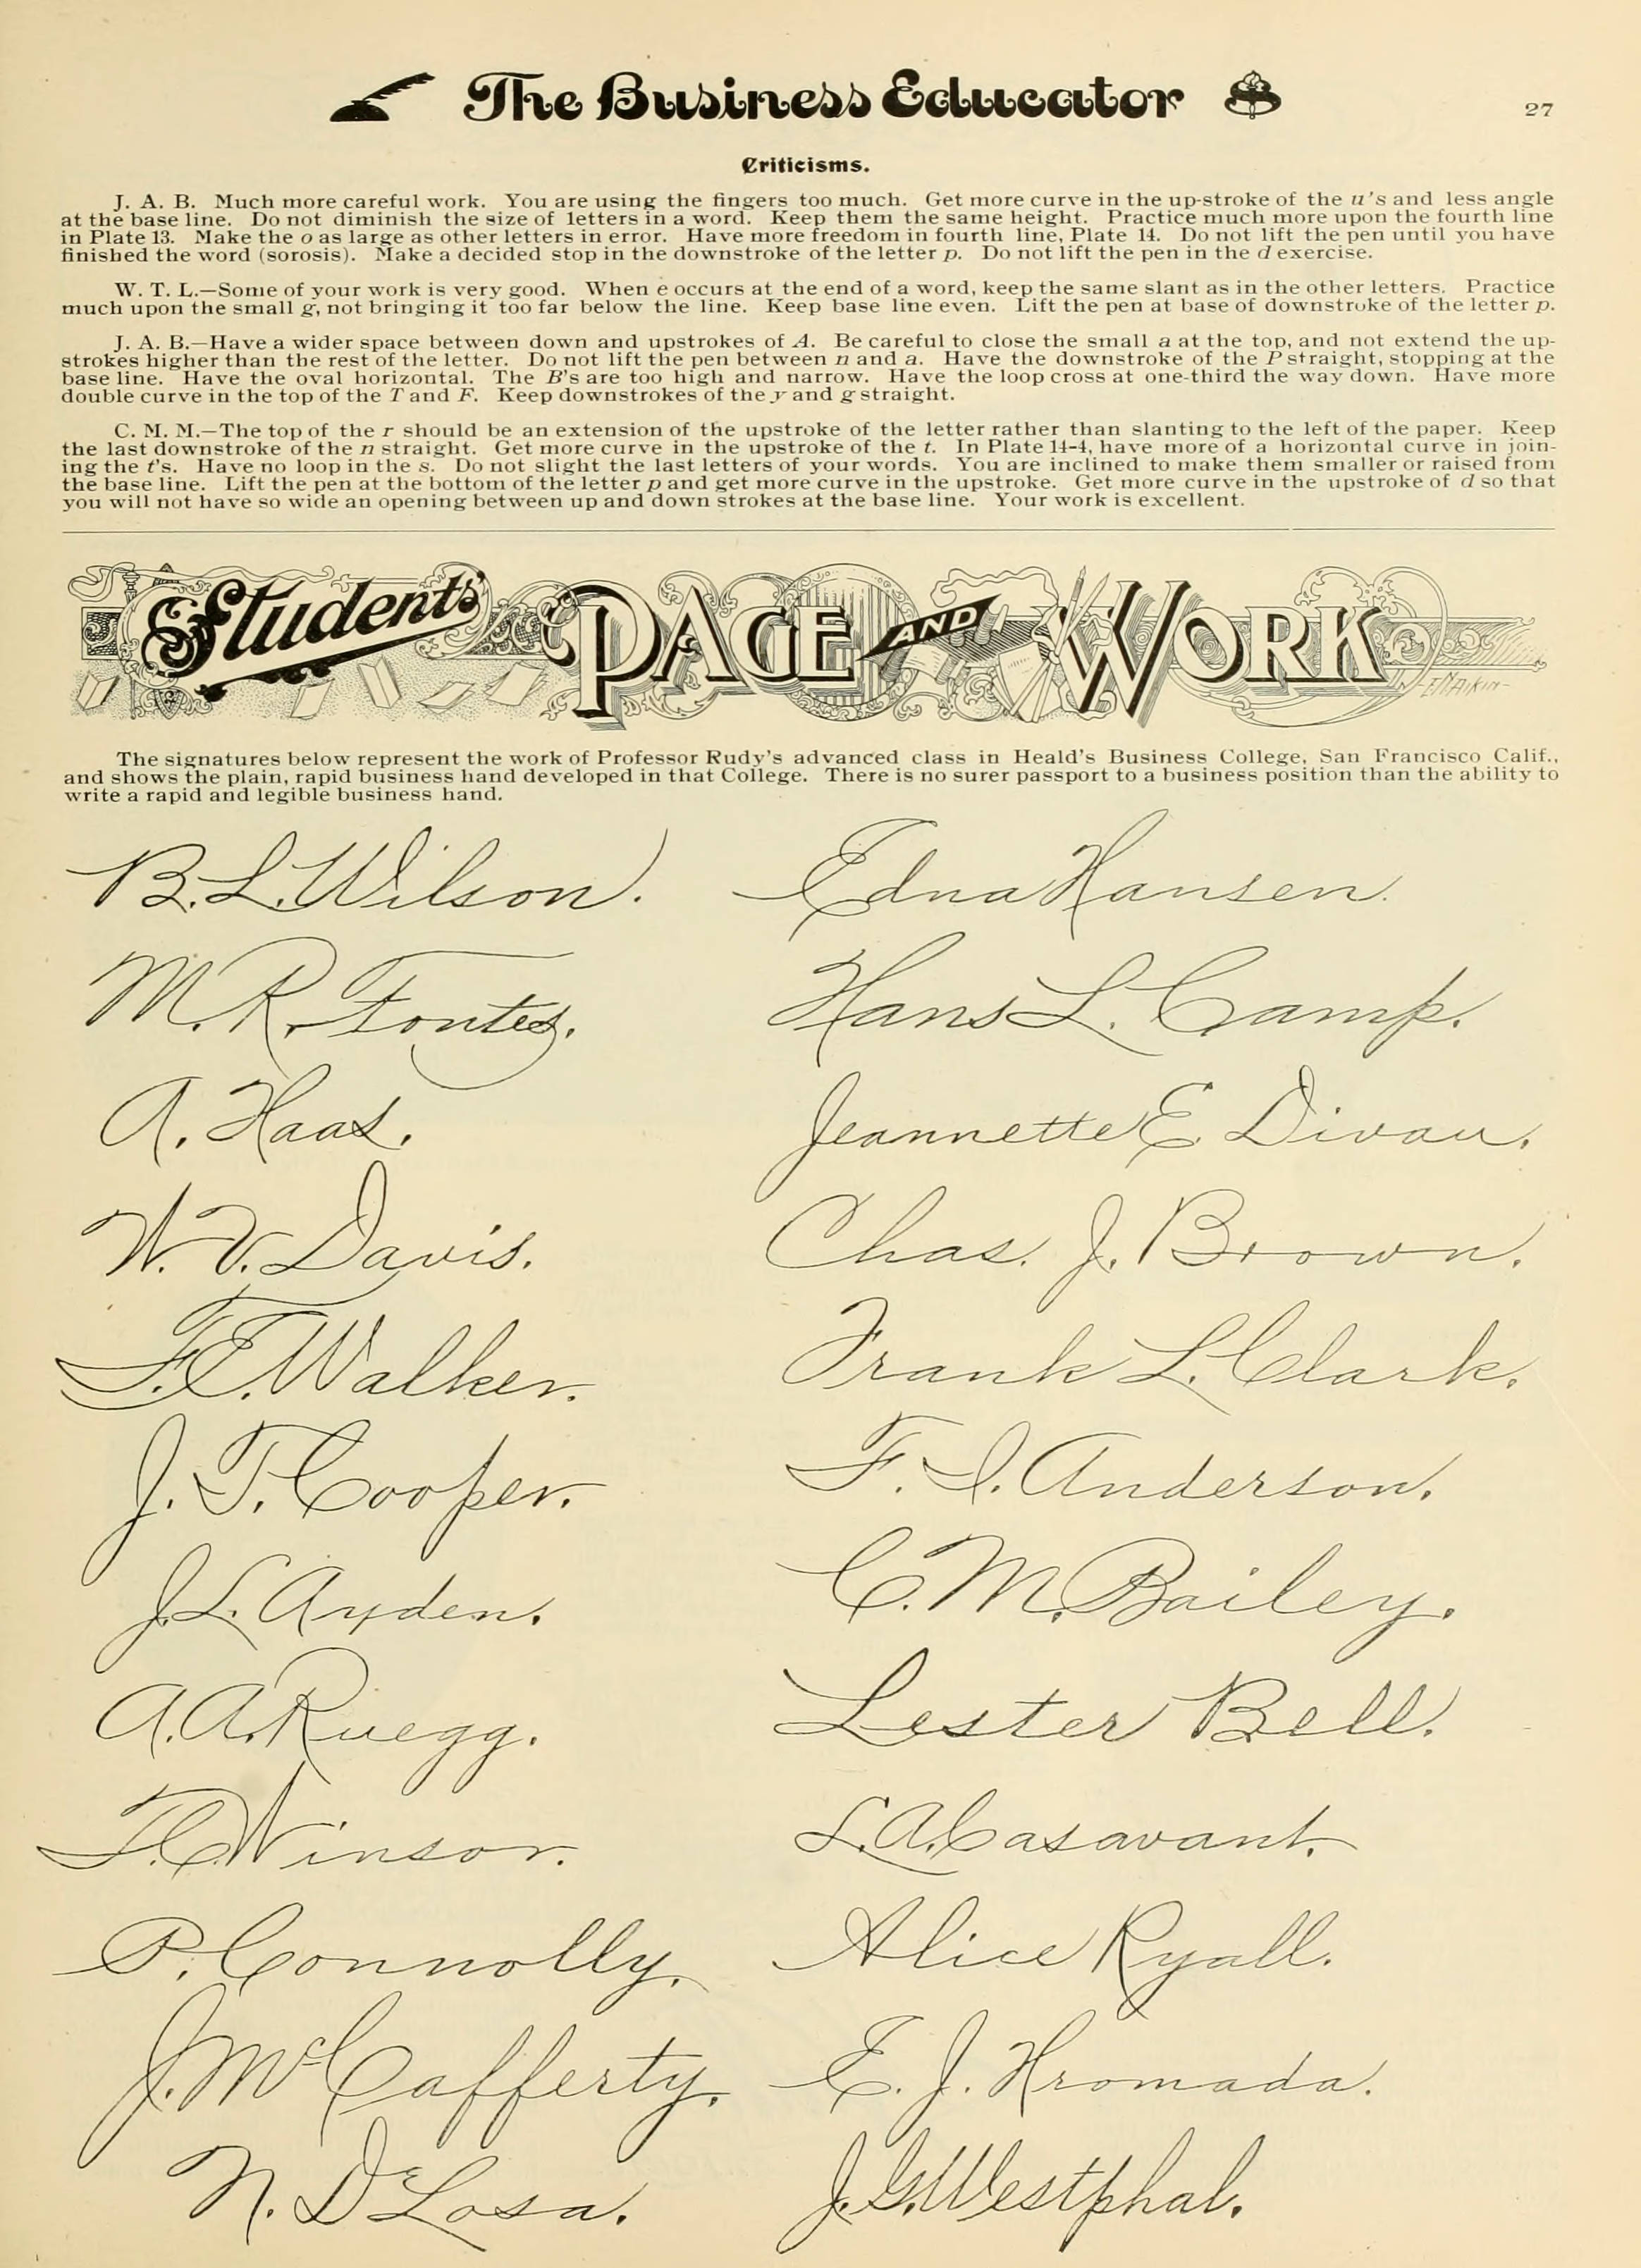 The Business Educator
27
Criticisms.
J. A. B. Much more careful work. You are using the fingers too much. Get more curve in the up-stroke of the u's and less angle
at the base line. Do not diminish the size of letters in a word. Keep them the same height. Practice much more upon the fourth line
in Plate 13. Make the o as large as other letters in error. Have more freedom in fourth line, Plate 14. Do not lift the pen until you have
finished the word (sorosis). Make a decided stop in the downstroke of the letter p. Do not lift the pen in the d exercise.
W. T. L.—Some of your work is very good. When e occurs at the end of a word, keep the same slant as in the other letters. Practice
much upon the small g, not bringing it too far below the line. Keep base line even. Lift the pen at base of downstroke of the letter p.
J. A. B.—Have a wider space between down and upstrokes of A. Be careful to close the small a at the top, and not extend the up-
strokes higher than the rest of the letter. Do not lift the pen between n and a. Have the downstroke of the P straight, stopping at the
base line. Have the oval horizontal. The B's are too high and narrow. Have the loop cross at one-third the way down. Have more
double curve in the top of the T and F. Keep downstrokes of the y and g straight.
C. M. M.—The top of the r should be an extension of the upstroke of the letter rather than slanting to the left of the paper. Keep
the last downstroke of the n straight. Get more curve in the upstroke of the t. In Plate 14-4, have more of a horizontal curve in join-
ing the t's. Have no loop in the s. Do not slight the last letters of your words. You are inclined to make them smaller or raised from
the base line. Lift the pen at the bottom of the letter p and get more curve in the upstroke. Get more curve in the upstroke of d so that
you will not have so wide an opening between up and down strokes at the base line. Your work is excellent.
Students' PAGE AND WORK
The signatures below represent the work of Professor Rudy's advanced class in Heald's Business College, San Francisco Calif.,
and shows the plain, rapid business hand developed in that College. There is no surer passport to a business position than the ability to
write a rapid and legible business hand.
B. L. Wilson.
Edna Hansen.
M. R. Fontes.
Hans L. Camp.
A. Haas.
Jeannette E. Divau.
W. V. Davis.
Chas. J. Brown.
F. E. Walker.
Frank L. Clark.
J. T. Cooper.
F. I. Anderson.
J. L. Ayden.
C. M. Bailey.
A. A. Ruegg.
Lester Bell.
F. C. Winsor.
L. A. Casavant.
P. Connolly.
Alice Ryall.
J. McCafferty.
E. J. Hromada.
N. De Losa.
J. G. Westphal.